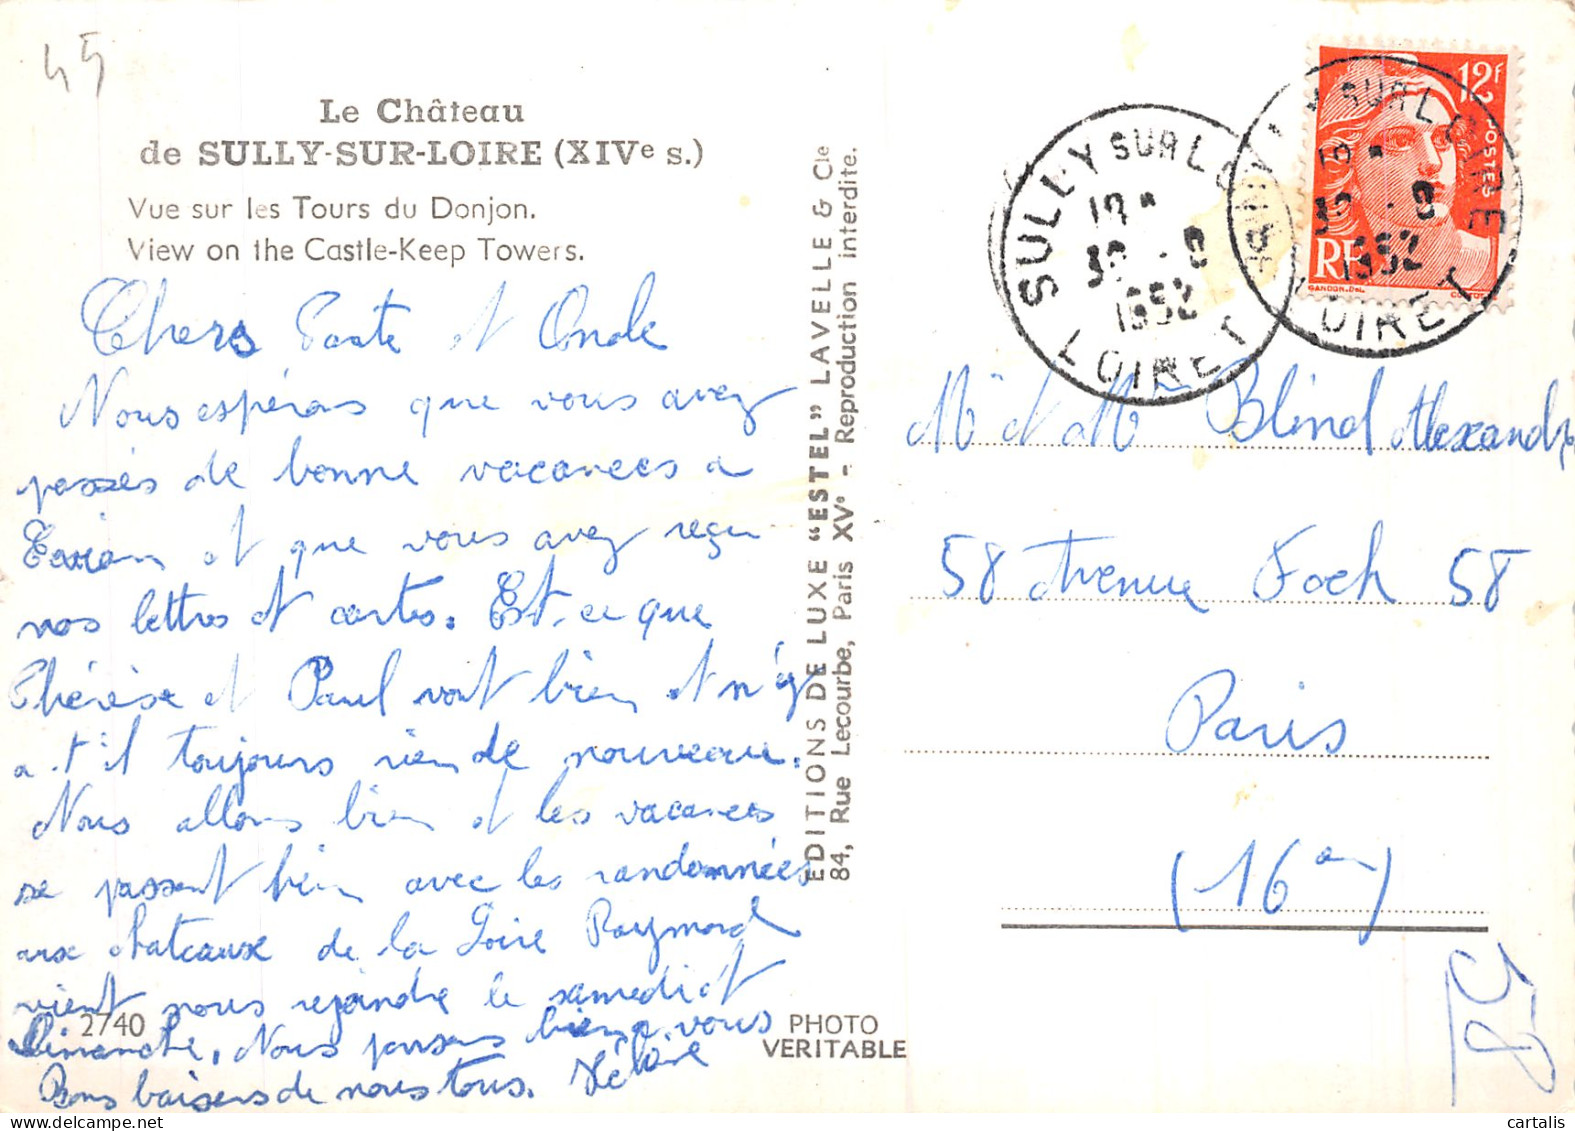 45
Le Château
de SULLY-SUR-LOIRE (XIVe s.)
Vue sur les Tours du Donjon.
View on the Castle-Keep Towers.
Chers Tante et Oncle
Nous espérons que vous avez
passés de bonne vacances a
et que vous avez reçu
nos lettres et cartes. Est-ce que
Thérèse et Paul vont bien et n'y
a-t-il toujours rien de nouveau.
Nous allons bien et les vacances
se passent bien avec les randonnées
aux chateaux de la Loire Raymond
vient nous rejoindre le samedi et
Dimanche. Nous pensons bien a vous
Bons baisers de nous tous.
2740
PHOTO
VERITABLE
EDITIONS DE LUXE "ESTEL" LAVELLE & Cie
84, Rue Lecourbe, Paris XVe - Reproduction interdite.
SULLY SUR LOIRE
1952
LOIRET
SULLY SUR LOIRE
1952
LOIRET
12F
POSTES
RF
GANDON.Del.
Mr et Mme Blind Alexandre
58 Avenue Foch 58
Paris
(16em)
58
cartalis